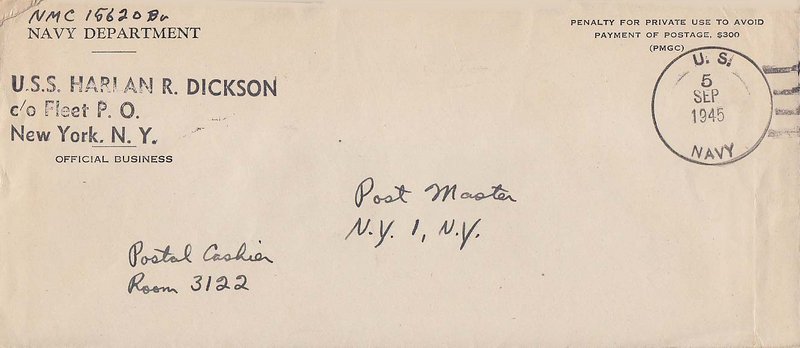 NMC 15620 Bu
NAVY DEPARTMENT
U.S.S. HARLAN R. DICKSON
c/o Fleet P. O.
New York. N. Y.
OFFICIAL BUSINESS
PENALTY FOR PRIVATE USE TO AVOID
PAYMENT OF POSTAGE, $300
(PMGC)
U. S.
5
SEP
1945
NAVY
Post Master
N.Y. 1, N.Y.
Postal Cashier
Room 3122